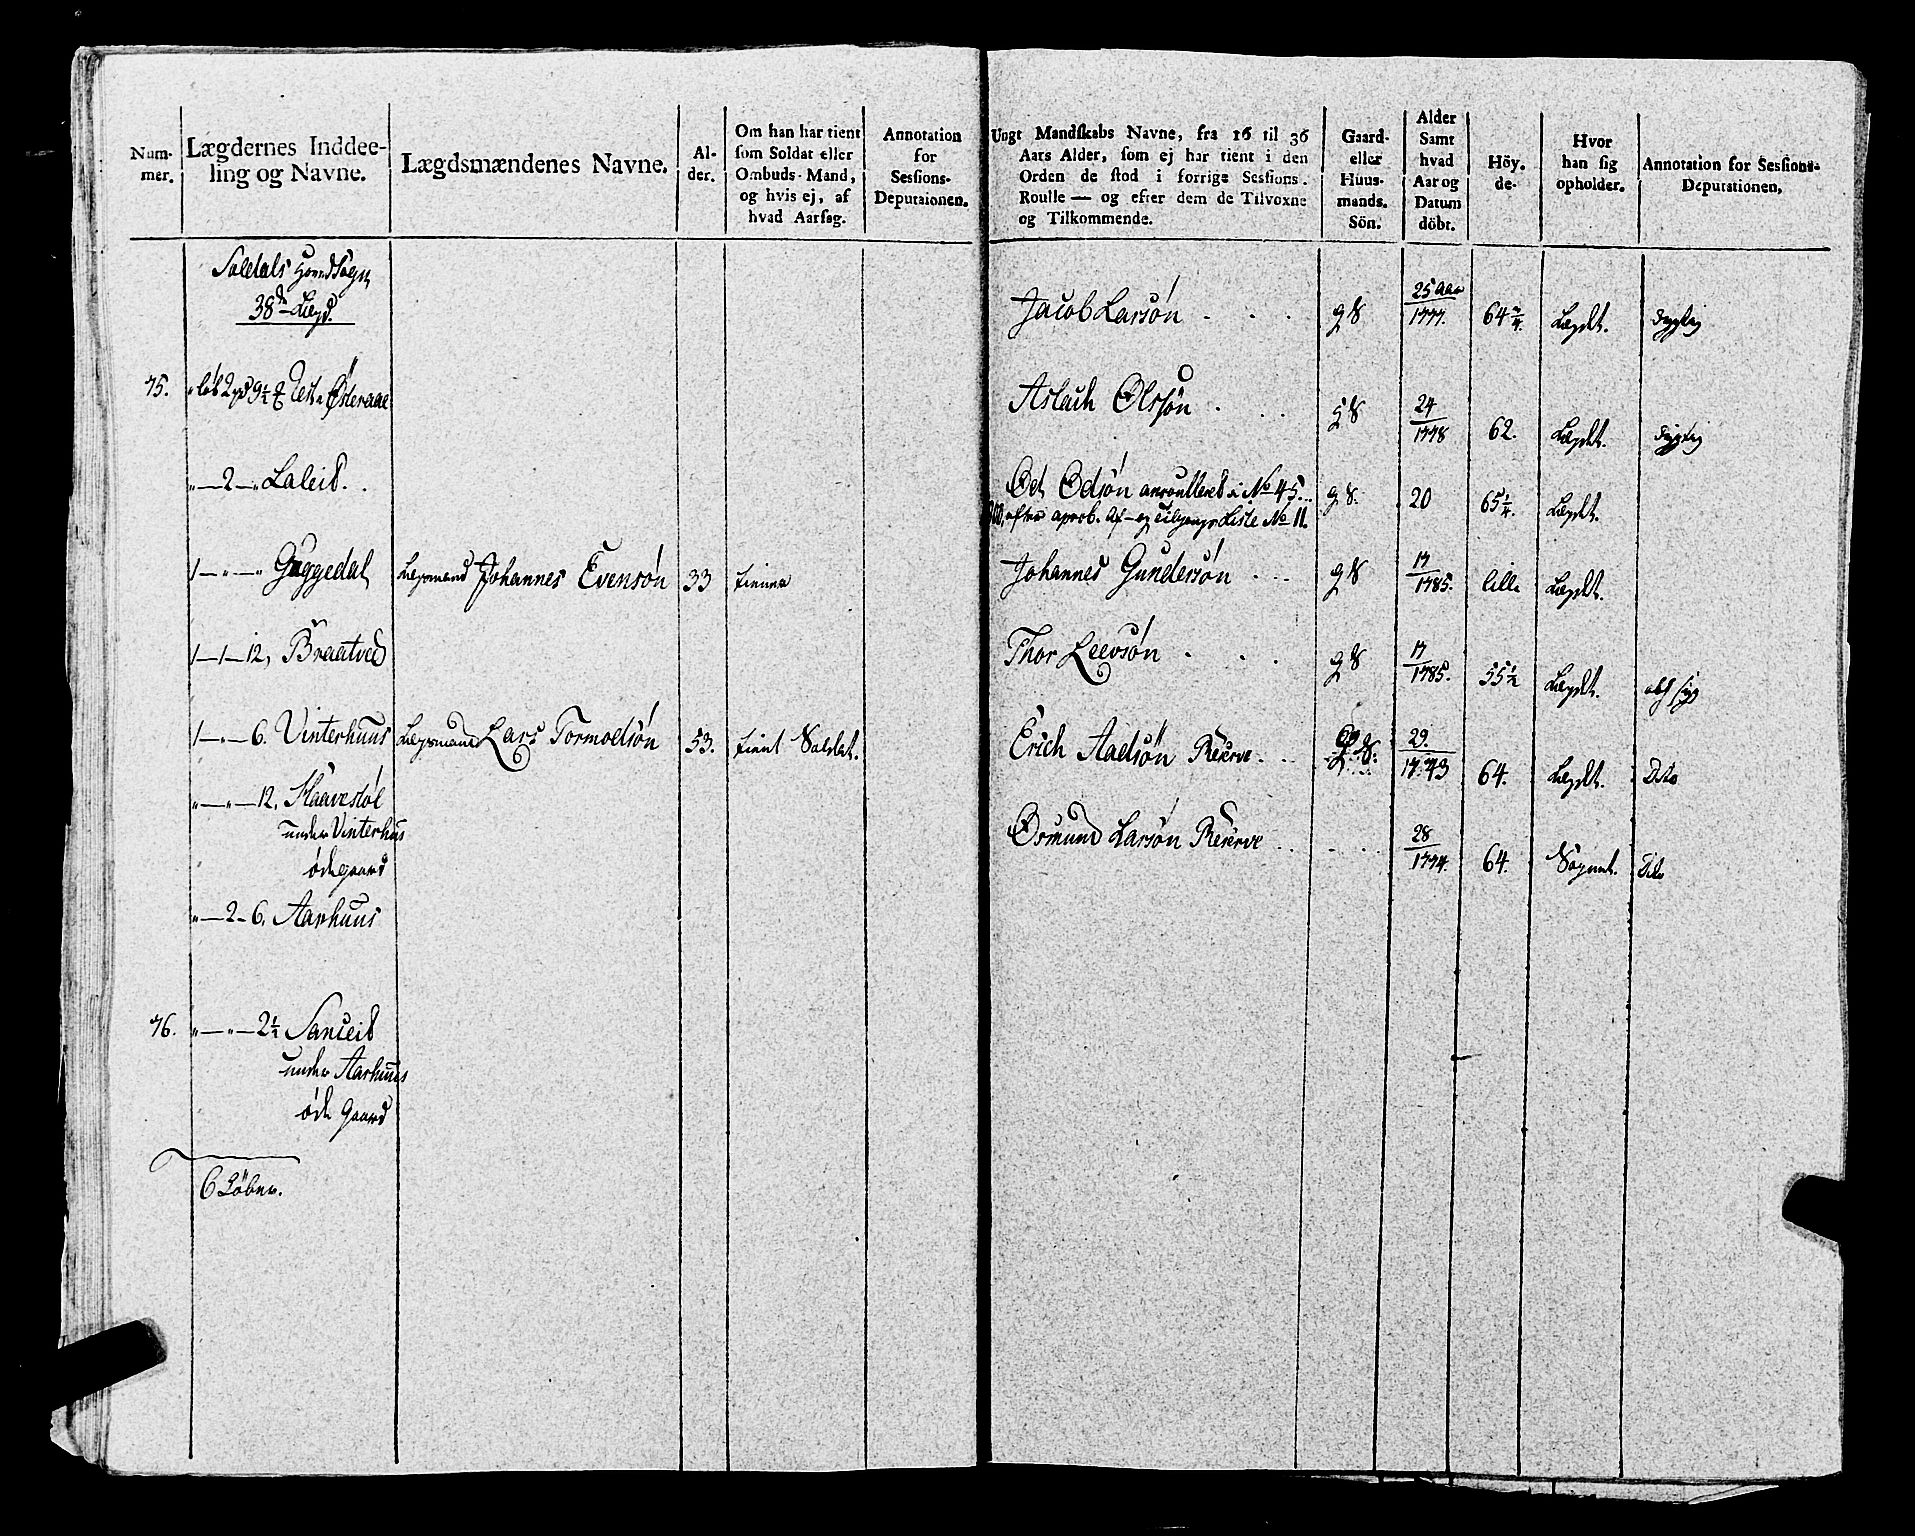 Num-
mer.
Lægdernes Inddee-
ling og Navne.
Lægdsmændenes Navne.
Al-
der.
Om han har tient
som Soldat eller
Ombuds-Mand,
og hvis ej, af
hvad Aarsag.
Annotation
for
Sessions-
Deputaionen.
Suldals HovedSogn
38de Lægd.
75.
Østeraae
"—2—" Laleid.
1—"—" Guggedal
Lægsmand Johannes Evensøn 33 tienner
1—1—12, Braatved
1—"—6. Vinterhuus
Lægsmand Lars Tormodsøn 53. tient Soldat.
"—"—12,
under Vinterhus
øde gaard
"—2—6. Aarhuus
76. "—"—2½
under Aarhuus
øde Gaard
6 Løber.
Ungt Mandskabs Navne, fra 16 til 36
Aars Alder, som ej har tient i den
Orden de stod i forrige Sessions-
Roulle — og efter dem de Tilvoxne
og Tilkommende.
Gaard-
eller
Huus-
mands-
Sön.
Alder
Samt
hvad
Aar og
Datum
döbt.
Höy-
de-
Hvor
han sig
opholder.
Annotation for Sessions-
Deputationen,
Jacob Larsøn . . . g S 25 Aar 1777. 64 Lægdet. dygtig
Aslach Olssøn . . . g S 24 1778 62. Lægdet. dygtig
Od Odsøn anroulleret i No 45. . . g S. 20 65¼. Lægdet.
efter aprob. Af- og Tilgangs Liste No 11.
Johannes Gundersøn . . . g S 17 1785. lille Lægdet.
Thor Leevsøn . . . g S 17 1785. 55½ Lægdet.
Erich Aadsøn Reserve . . . 29. 1773 64. Lægdet. Dito
Osmund Larsøn Reserve . . . 28 1774. 64. Sognet. Dito